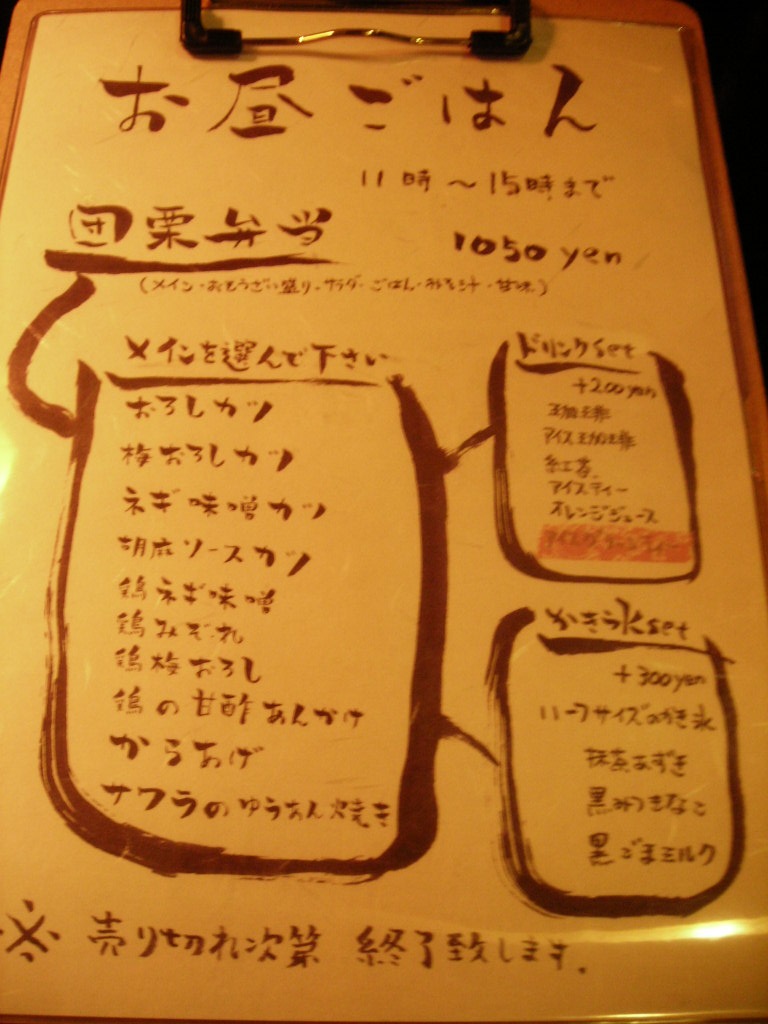 お昼ごはん
11時〜15時まで
団栗弁当 1050yen
(メイン・おそうざい盛り・サラダ・ごはん・みそ汁・甘味)
メインを選んで下さい
おろしカツ
梅おろしカツ
ネギ味噌カツ
胡麻ソースカツ
鶏ネギ味噌
鶏みぞれ
鶏梅おろし
鶏の甘酢あんかけ
からあげ
サワラのゆうあん焼き
ドリンクset
+200yen
珈琲
アイス珈琲
紅茶
アイスティー
オレンジジュース
アイスグリーンティー
かき氷set
+300yen
ハーフサイズのかき氷
抹茶あずき
黒みつきなこ
黒ごまミルク
※売り切れ次第 終了致します。